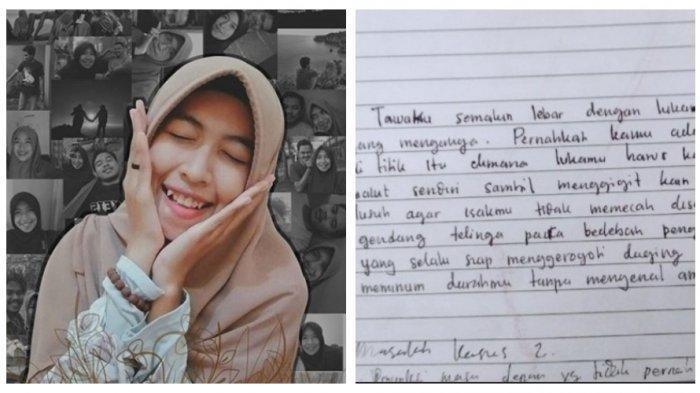 Tawaku semakin lebar dengan lukan
ang menganga. Pernahkah kamu ada
di titik itu dimana lukamu harus k
balut sendiri sambil menggigit kain
lusuh agar isakmu tidak memecah dise
gendang telinga para bedebah peng
yang selalu siap menggerogoti daging
meminum darahmu tanpa mengenal am
Masalah Kasus 2.
masa depan yg tidak pernah